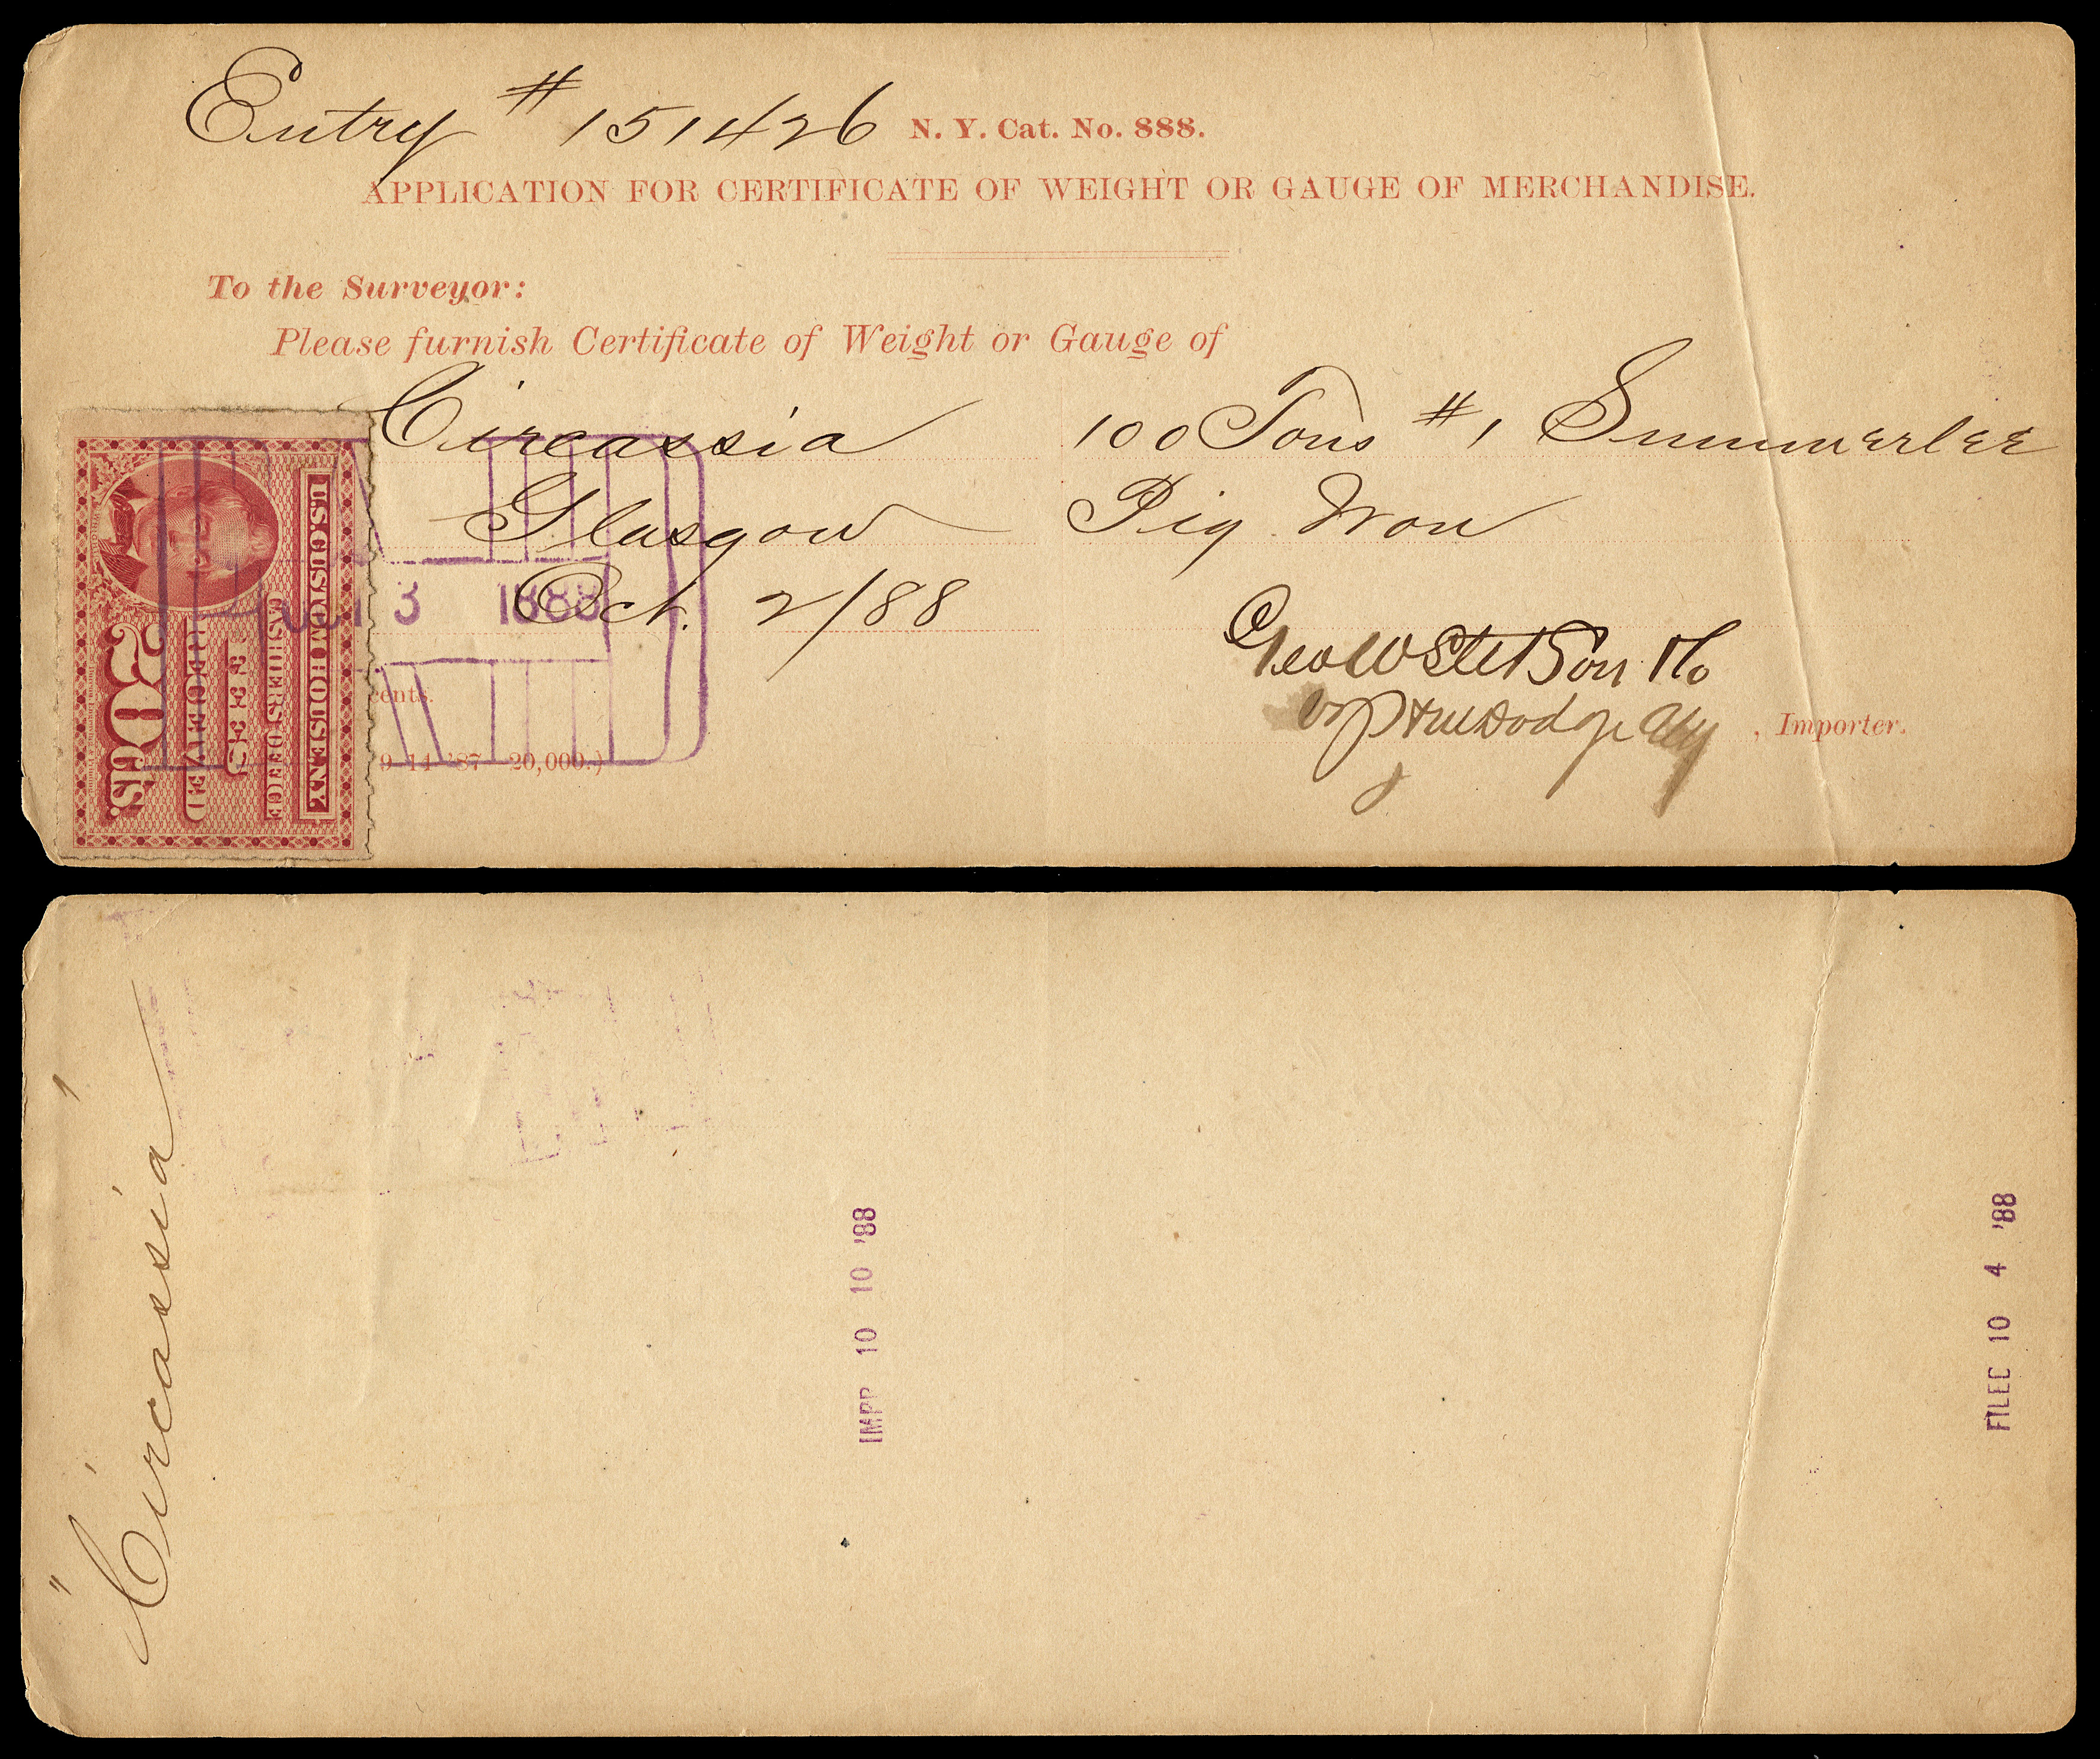 Entry # 151426 N. Y. Cat. No. 888.
APPLICATION FOR CERTIFICATE OF WEIGHT OR GAUGE OF MERCHANDISE.
To the Surveyor:
Please furnish Certificate of Weight or Gauge of
Circassia 100 Tons #1 Summerlee
Glasgow Pig Iron
Oct. 2/88
3 1888
Geo W Stetson & Co
Dodge Atty , Importer.
cents.
9-14-'87 20,000.)
U.S. CUSTOM HOUSE N.Y.
CASHIER'S OFFICE
FEES
RECEIVED
20 CTS.
"Circassia"
IMPP 10 10 '88
FILEC 10 4 '88